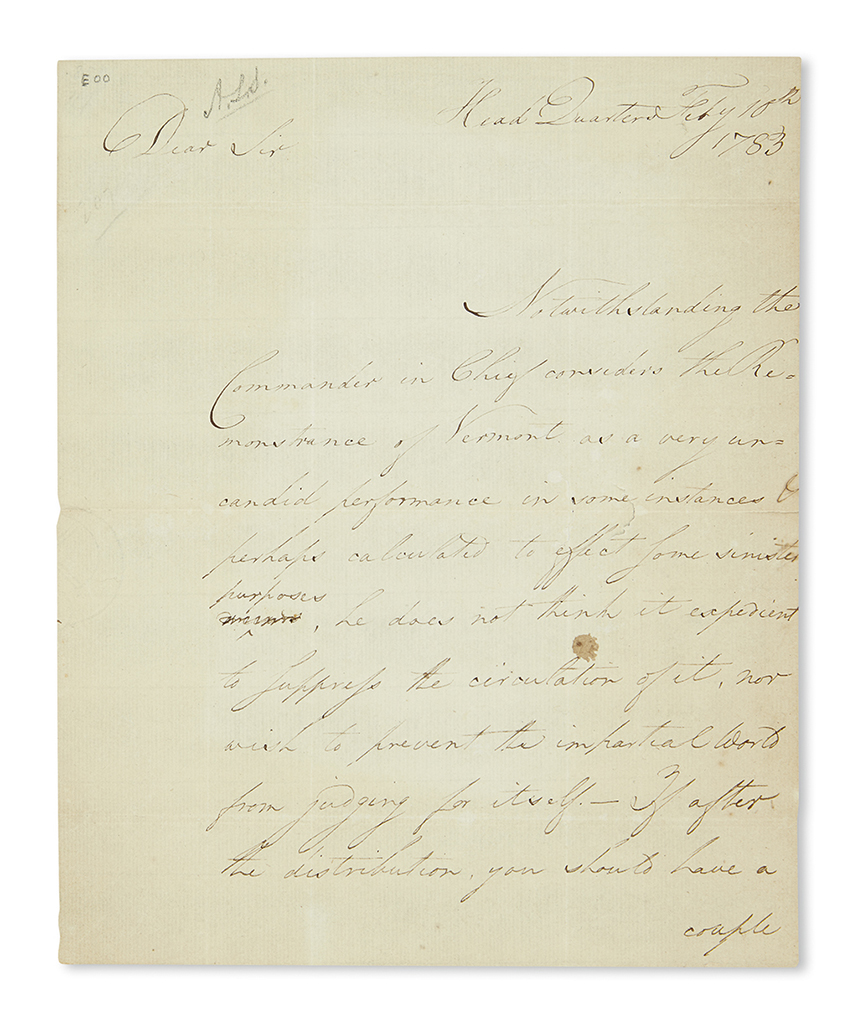 E00
A.L.S.
Head Quarters Feby 10th
1783
Dear Sir
Notwithstanding the
Commander in Chief considers the Re=
monstrance of Vermont as a very un=
candid performance in some instances &
perhaps calculated to effect some sinister
purposes
, he does not think it expedient
to suppress the circulation of it, nor
wish to prevent the impartial World
from judging for itself.— If after
the distribution, you should have a
couple